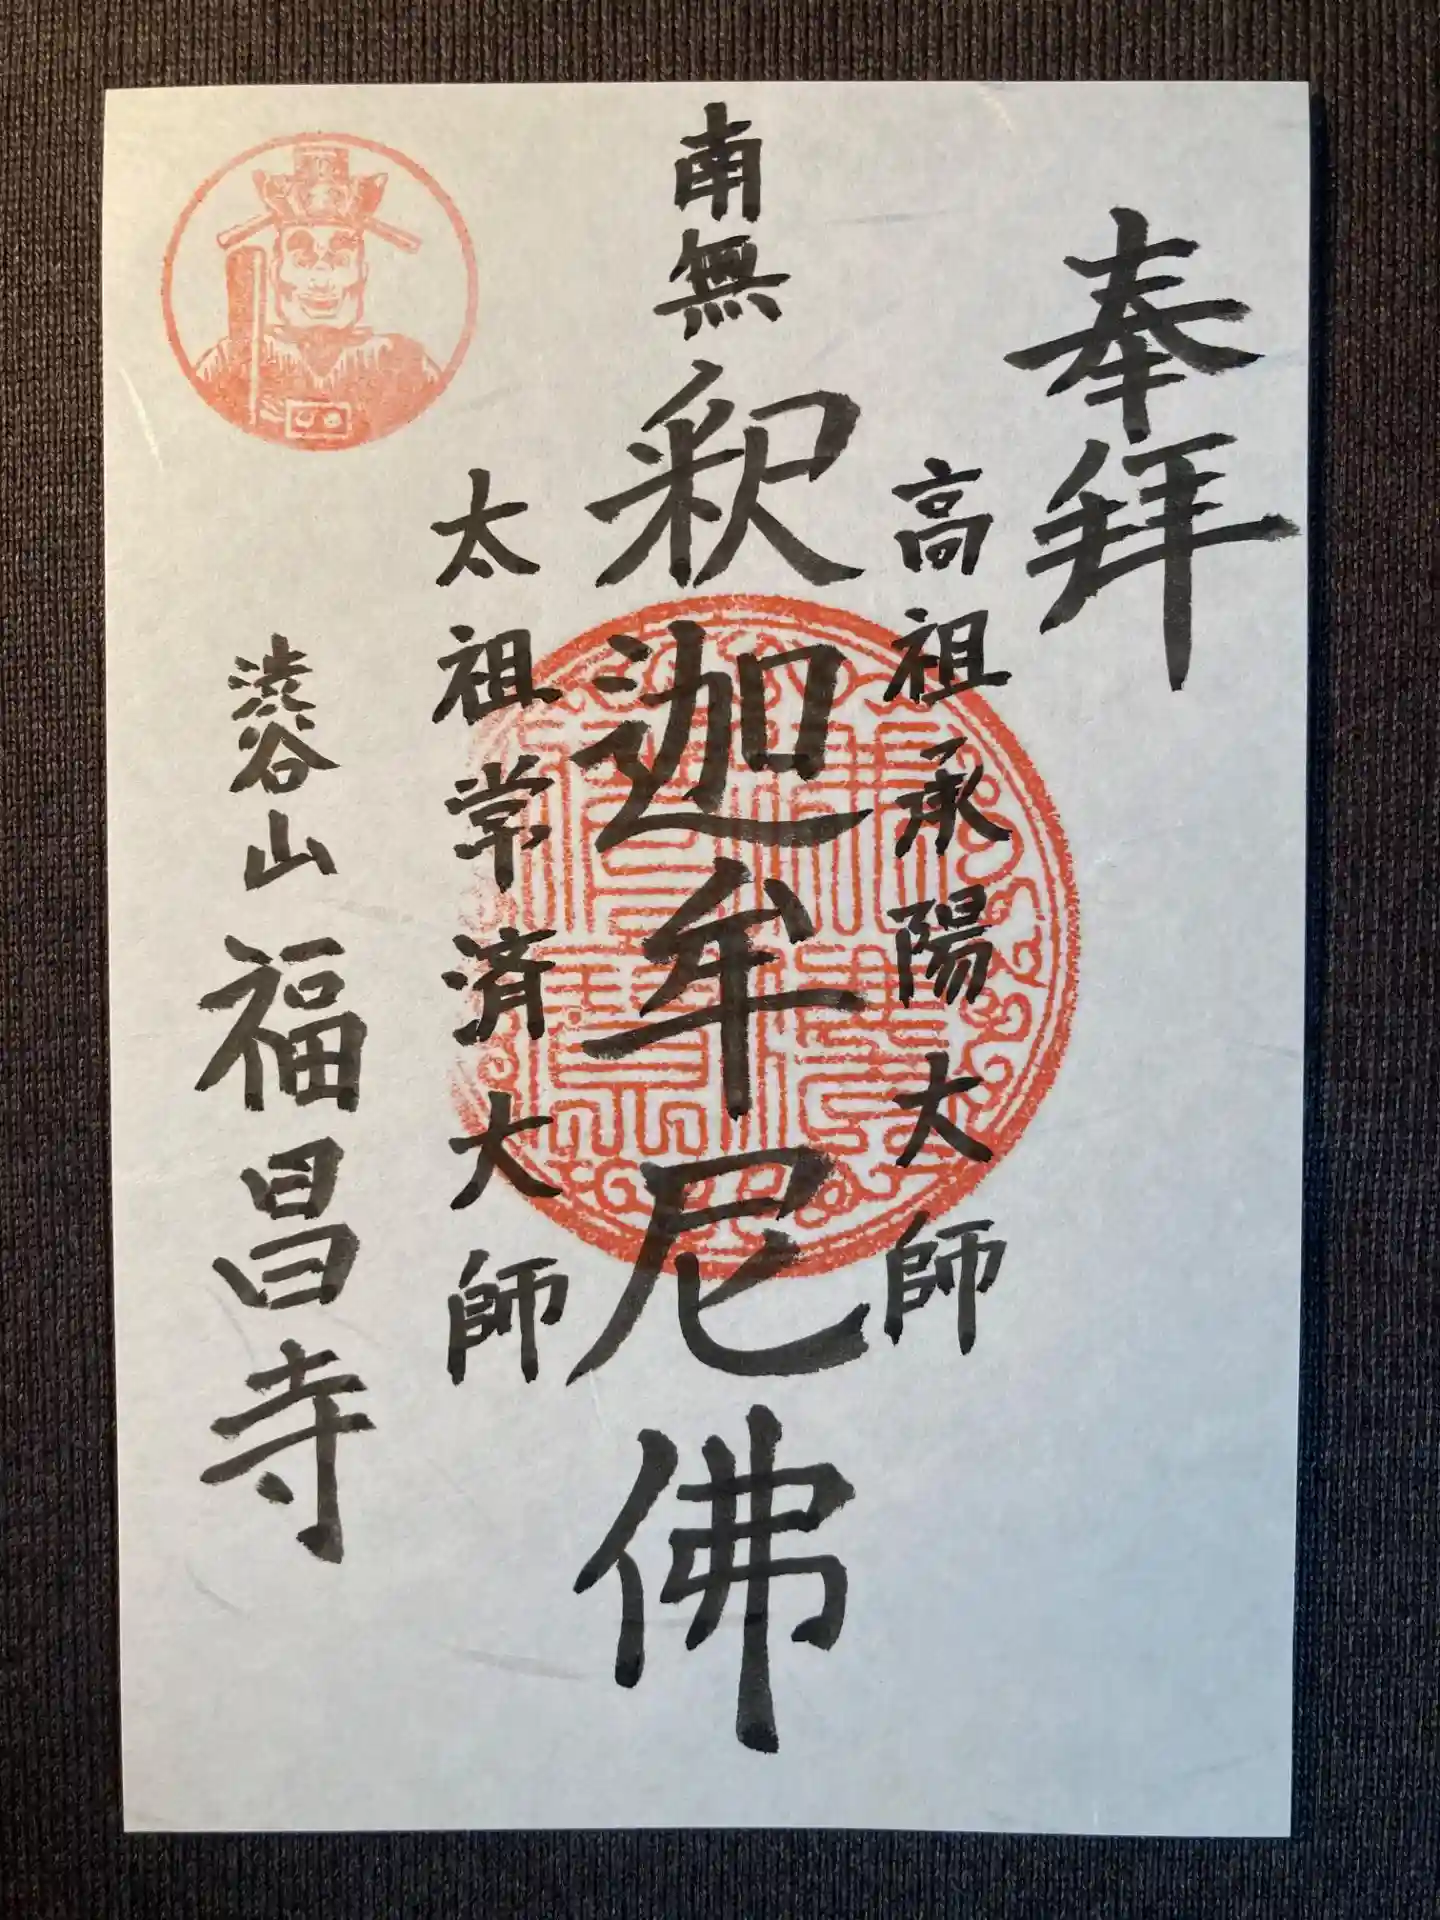 奉拝
高祖承陽大師
南無釈迦牟尼佛
太祖常済大師
渋谷山福昌寺